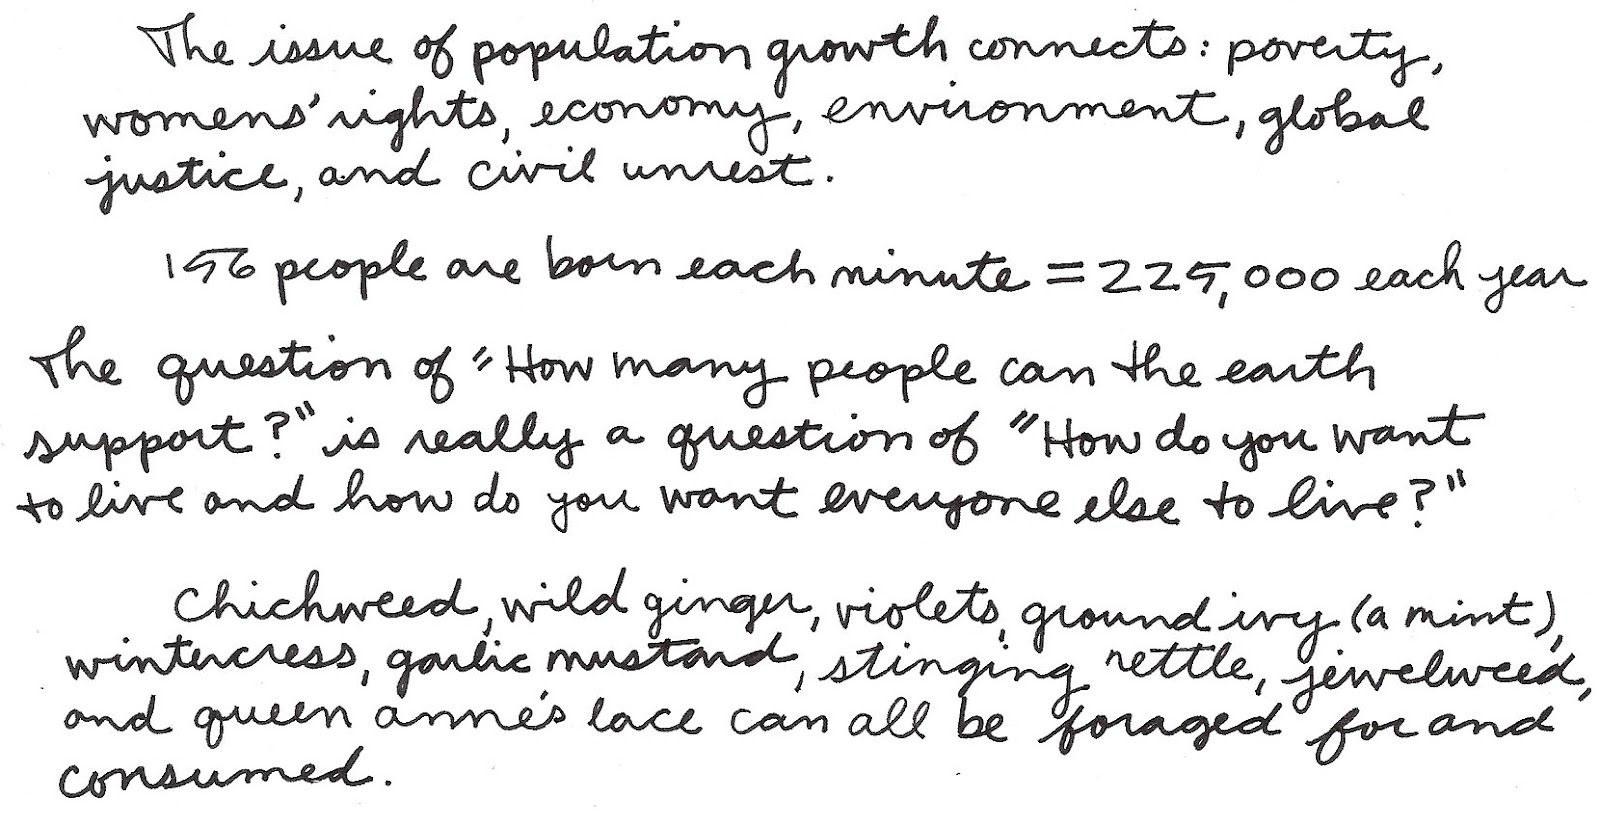 The issue of population growth connects: poverty,
womens' rights, economy, environment, global
justice, and civil unrest.
156 people are born each minute = 225,000 each year
The question of "How many people can the earth
support?" is really a question of "How do you want
to live and how do you want everyone else to live?"
Chickweed, wild ginger, violets, ground ivy (a mint),
wintercress, garlic mustard, stinging nettle, jewelweed,
and queen anne's lace can all be foraged for and
consumed.